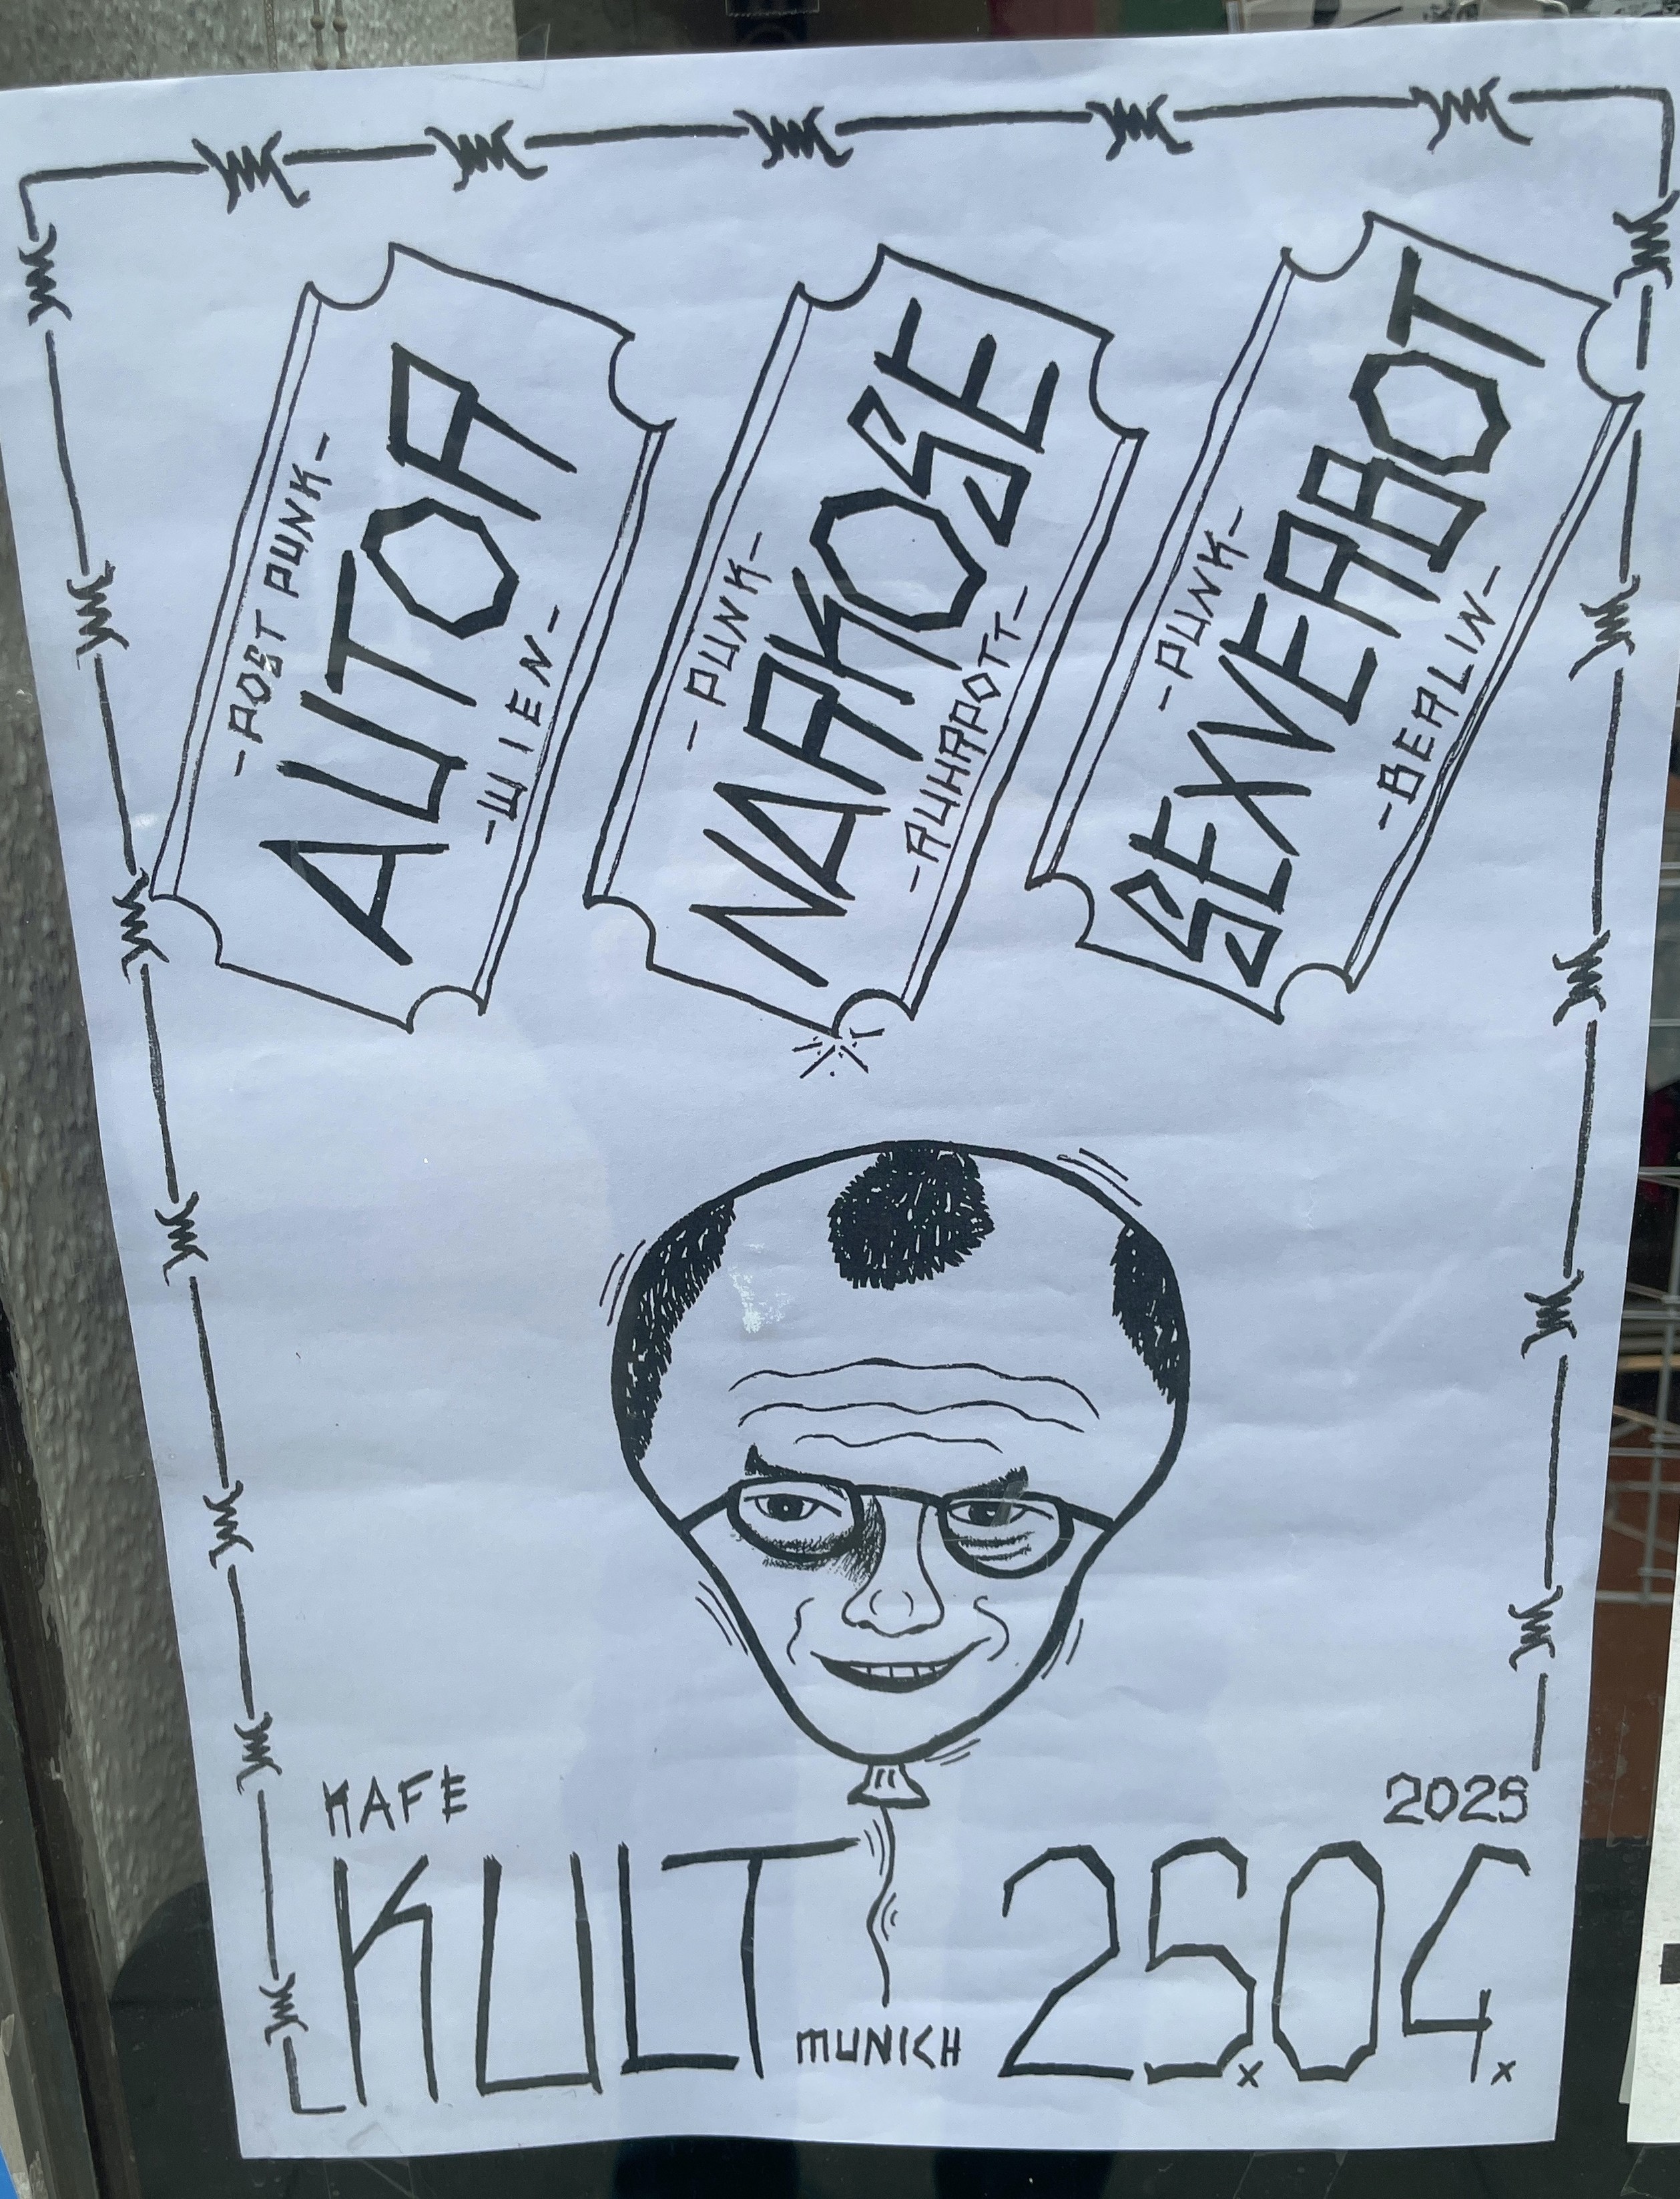 -POST PUNK-
AUTOR
-WIEN-
-PUNK-
NARKOSE
-RUHRPOTT-
-PUNK-
SEXVERBOT
-BERLIN-
KAFE
KULT
MUNICH
2025
25.04.